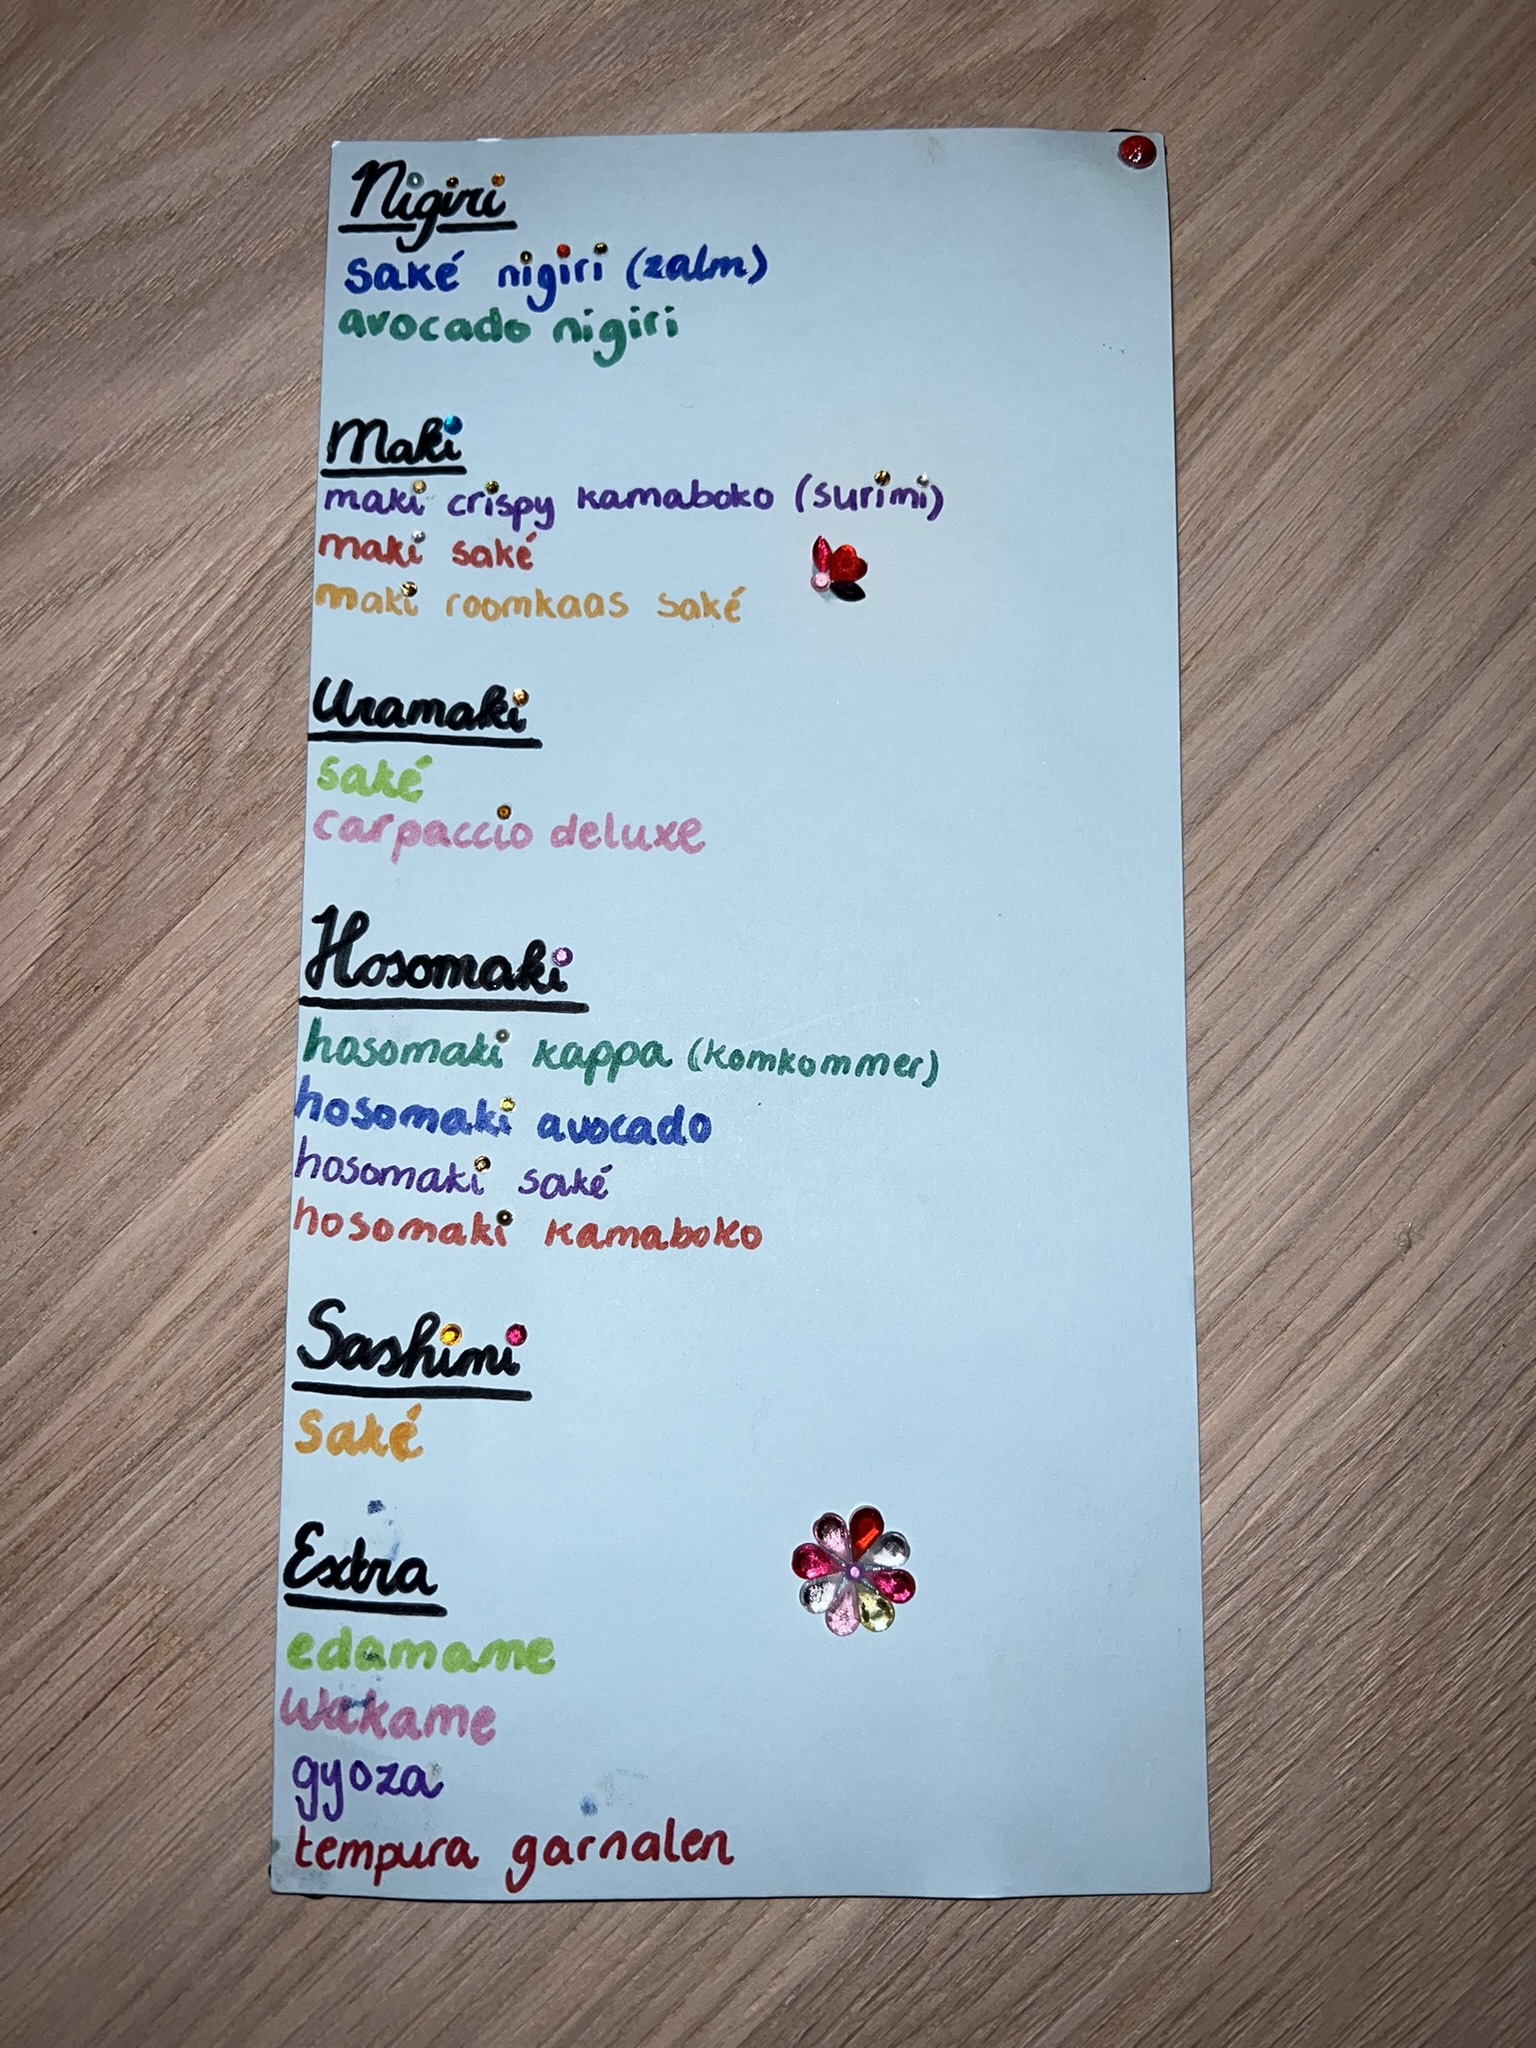 Nigiri
saké nigiri (zalm)
avocado nigiri
Maki
maki crispy kamaboko (surimi)
maki saké
maki roomkaas saké
Uramaki
saké
carpaccio deluxe
Hosomaki
hosomaki kappa (komkommer)
hosomaki avocado
hosomaki saké
hosomaki kamaboko
Sashimi
saké
Extra
edamame
wakame
gyoza
tempura garnalen